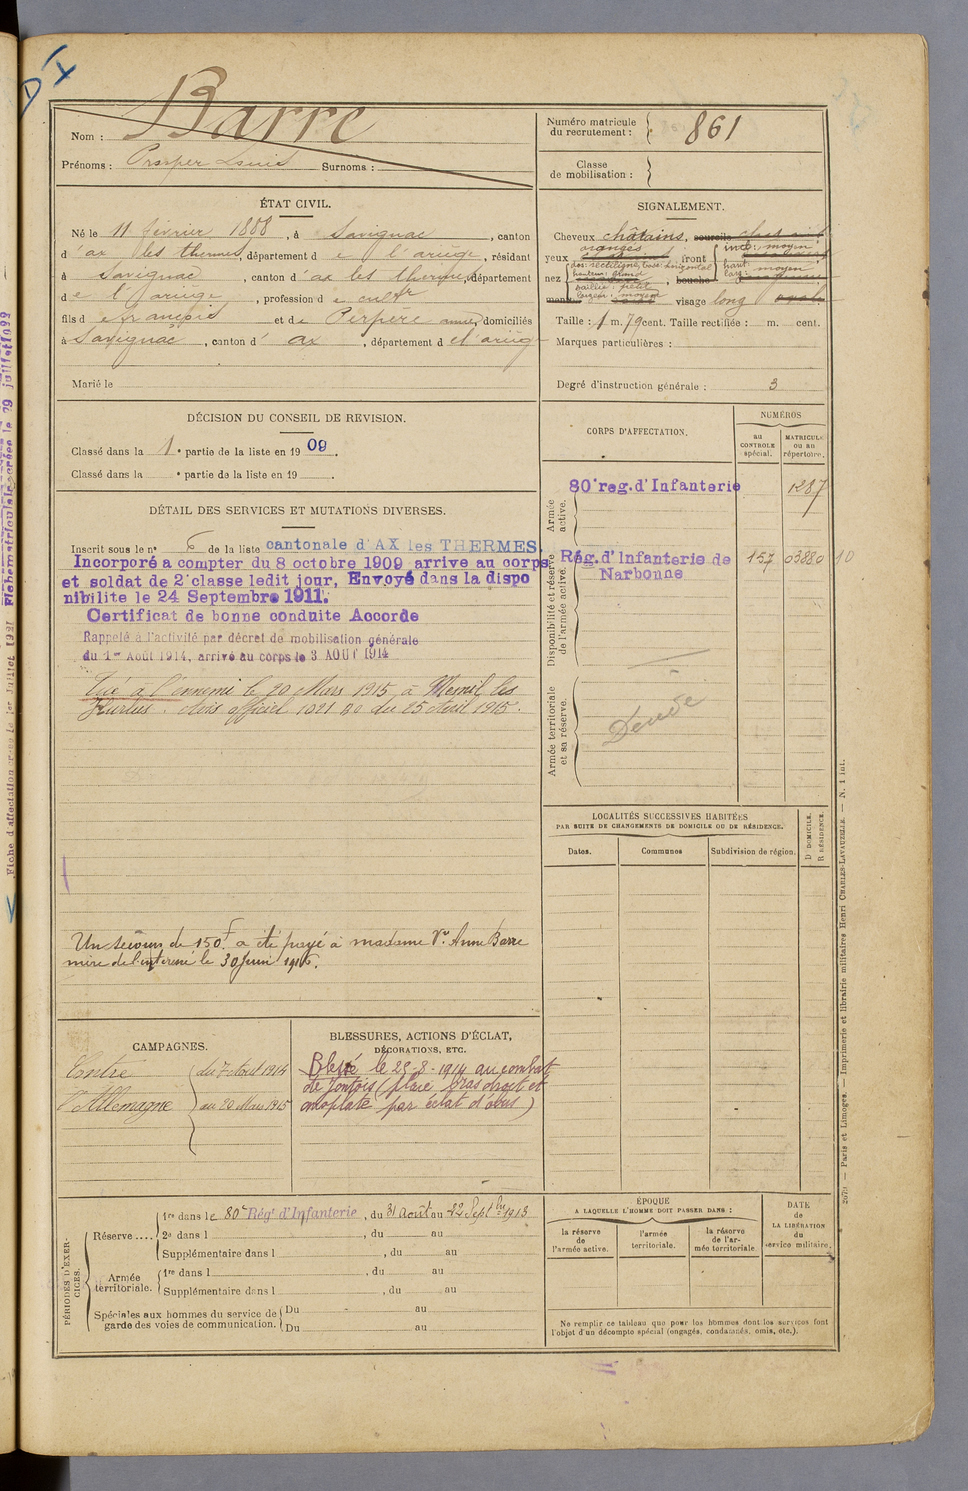 D I
Nom : Barre
Prénoms : Prosper Louis Surnoms :
Numéro matricule
du recrutement : 861
Classe
de mobilisation :
ÉTAT CIVIL.
Né le 11 février 1888, à Savignac, canton
d' ax les thermes, département de l'ariège, résidant
à Savignac, canton d'ax les thermes, département
de l'ariège, profession de cultr
fils de françois et de Perpere anne, domiciliés
à Savignac, canton d' ax, département de l'arièg
Marié le
SIGNALEMENT.
Cheveux châtains, sourcils
yeux oranges, front incl: moyen
haut: moyen
nez dos: rectiligne, base: horizontal
hauteur:
saillie: petit
largeur: moyen
bouche
menton visage long ovale
Taille : 1 m. 79 cent. Taille rectifiée : m. cent.
Marques particulières :
Degré d'instruction générale : 3
DÉCISION DU CONSEIL DE REVISION.
Classé dans la 1e partie de la liste en 1909.
Classé dans la e partie de la liste en 19 .
CORPS D'AFFECTATION.
NUMÉROS
au
CONTROLE
spécial.
MATRICULE
ou au
répertoire.
Armée
active.
80e reg. d'Infanterie 1287
Disponibilité et réserve
de l'armée active.
Rég. d'Infanterie de
Narbonne 157 03880 10
Armée territoriale
et sa réserve.
DÉTAIL DES SERVICES ET MUTATIONS DIVERSES.
Inscrit sous le no 6 de la liste cantonale d'AX les THERMES.
Incorporé a compter du 8 octobre 1909 arrive au corps
et soldat de 2e classe ledit jour, Envoyé dans la dispo
nibilite le 24 Septembre 1911.
Certificat de bonne conduite Accorde
Rappelé à l'activité par décret de mobilisation générale
du 1er Août 1914, arrivé au corps le 3 AOUT 1914
Tué à l'ennemi le 20 Mars 1915 à Mesnil les
Hurlus. Avis officiel 1021 du 25 Avril 1915.
Un secours de 150F a été payé à madame Ve Anne Barre
mère de l'intéressé le 30 Juin 1916.
LOCALITÉS SUCCESSIVES HABITÉES
PAR SUITE DE CHANGEMENTS DE DOMICILE OU DE RÉSIDENCE.
Dates.
Communes
Subdivision de région.
D DOMICILE.
R RÉSIDENCE.
CAMPAGNES.
Contre
l'Allemagne
du 3 Août 1914
au 20 Mars 1915
BLESSURES, ACTIONS D'ÉCLAT,
DÉCORATIONS, ETC.
Blessé le 28-8-1914 au combat
de (plaie bras droit et
omoplate par éclat d'obus)
PÉRIODES D'EXER-
CICES.
Réserve ....
1re dans le 80e Régt d'Infanterie, du 31 août au 22 Septbre 1913
2e dans l , du au
Supplémentaire dans l , du au
Armée
territoriale.
1re dans l , du au
Supplémentaire dans l , du au
Spéciales aux hommes du service de
garde des voies de communication.
Du au
Du au
ÉPOQUE
A LAQUELLE L'HOMME DOIT PASSER DANS :
la réserve
de
l'armée active.
l'armée
territoriale.
la réserve
de l'ar-
mée territoriale.
DATE
de
LA LIBÉRATION
du
service militaire.
Ne remplir ce tableau que pour les hommes dont les services font
l'objet d'un décompte spécial (engagés, condamnés, omis, etc.).
2679 — Paris et Limoges. — Imprimerie et librairie militaires Henri CHARLES-LAVAUZELLE. — N. 1 int.
Fiche d'affectation créée le 1er Juillet 1921
Fiche matriculaire créée le 29 juillet 1922